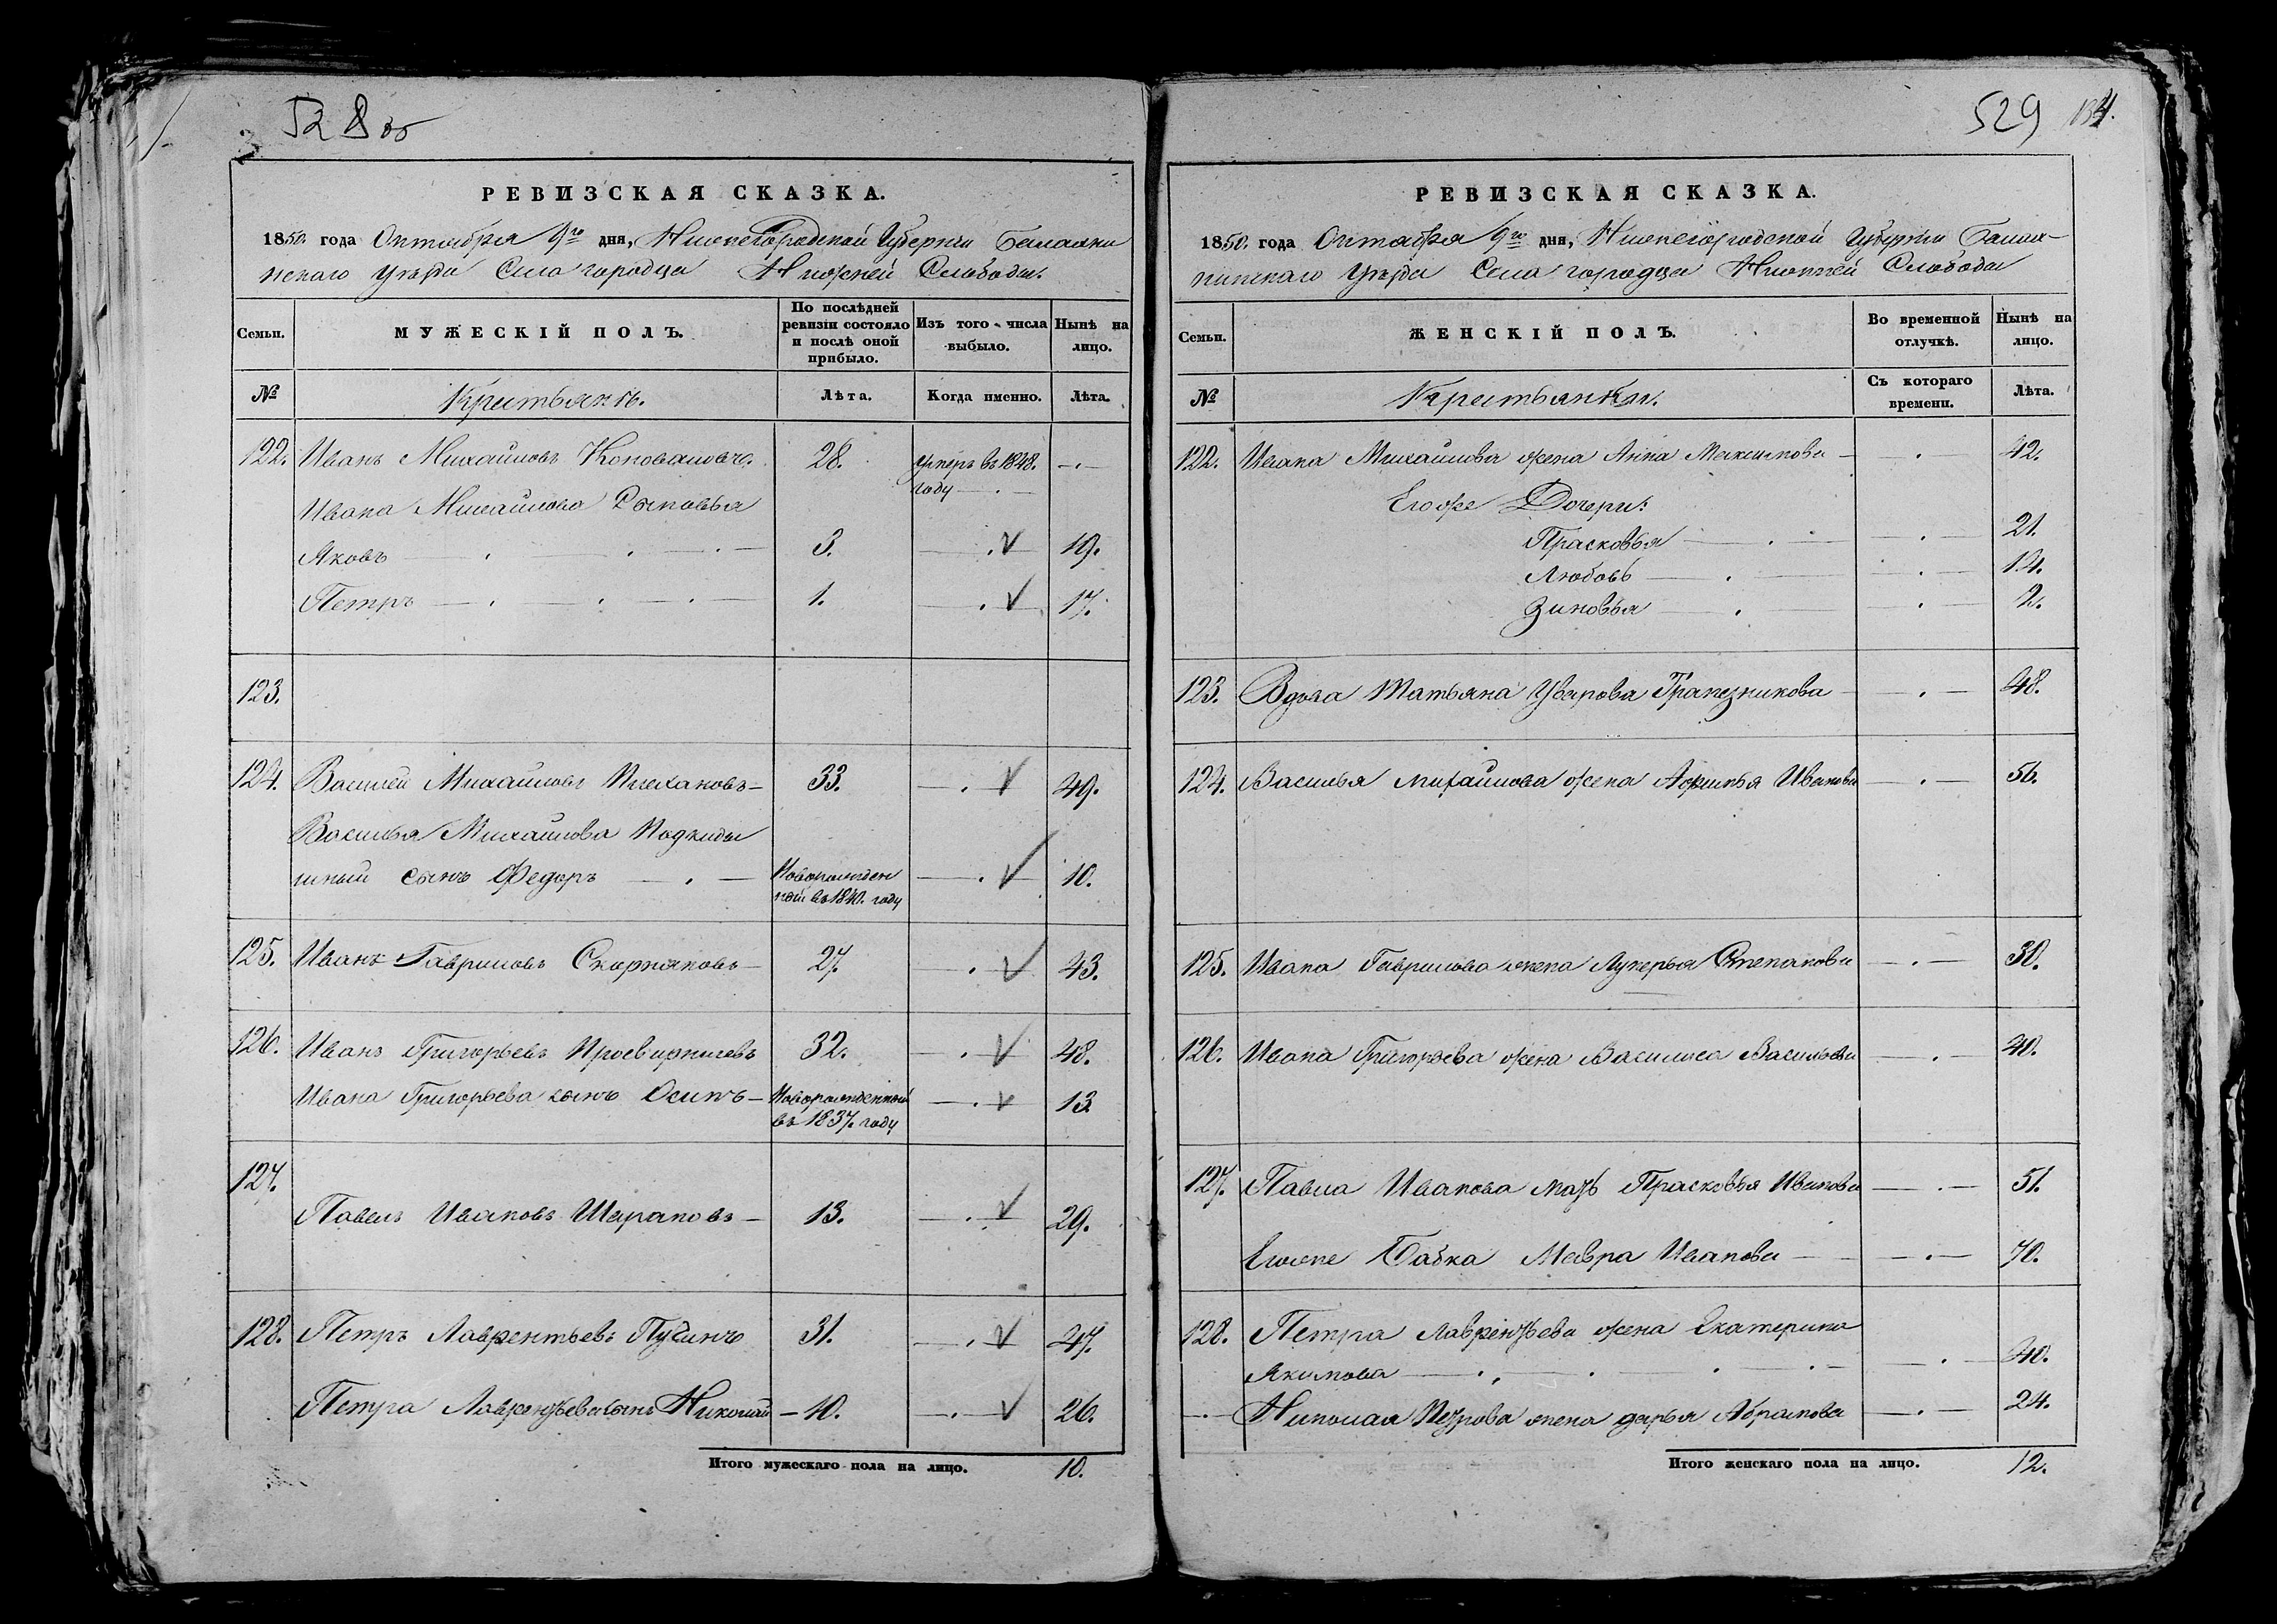 528
РЕВИЗСКАЯ СКАЗКА.
1850. года Октября 9го дня, Нижегородской Губернiи Балахнинскаго
уѣзда Села городца Нижней Слободы.
Семьи. МУЖЕСКІЙ ПОЛЪ. По послѣдней ревизіи состояло и послѣ оной прибыло. Изъ того числа выбыло. Нынѣ на лицо.
№ Крестьянъ. Лѣта. Когда именно. Лѣта.
122. Иванъ Михайловъ Коноваловъ. 28. умеръ въ 1848. году — . —
Ивана Михайлова Сыновья
Яковъ 3. 19.
Петръ 1. 17.
123.
124. Василей Михайловъ Плехановъ 33. 49.
Василья Михайлова Подкиды
шный сынъ Федоръ Новорожден
ной въ 1840. году 10.
125. Иванъ Гавриловъ Скорняковъ 27. 43.
126. Иванъ Григорьевъ Просвирничевъ 32. 48.
Ивана Григорьева сынъ Осипъ Новорожденной
въ 1837. году 13
127.
Павелъ Ивановъ Шараповъ 13. 29.
128. Петръ Лаврентьевъ Пучинъ 31. 47.
Петра Лаврентьева сынъ Николай 10. 26.
Итого мужескаго пола на лицо. 10.
529
РЕВИЗСКАЯ СКАЗКА.
1850. года Октября 9го дня, Нижегородской Губернiи Балах-
нинскаго уѣзда Села городца Нижней Слободы
Семьи. ЖЕНСКІЙ ПОЛЪ. Во временной отлучкѣ. Нынѣ на лицо.
№ Крестьянки. Съ котораго времени. Лѣта.
122. Ивана Михайлова жена Анна Максимова 42.
Егоже Дочери:
Прасковья 21.
Любовь 14.
Зиновья 2.
123. Вдова Татьяна Уварова Трапезникова 48.
124. Василья михайлова жена Афимья Иванова 56.
125. Ивана Гаврилова жена Лукерья Степанова 30.
126. Ивана Григорьева жена Василиса Васильева 40.
127. Павла Иванова мать Прасковья Иванова 51.
Егоже Бабка Мавра Иванова 70.
128. Петра Лаврентьева жена Екатерина
Якимова 40.
Николая Петрова жена дарья Абрамова 24.
Итого женскаго пола на лицо. 12.